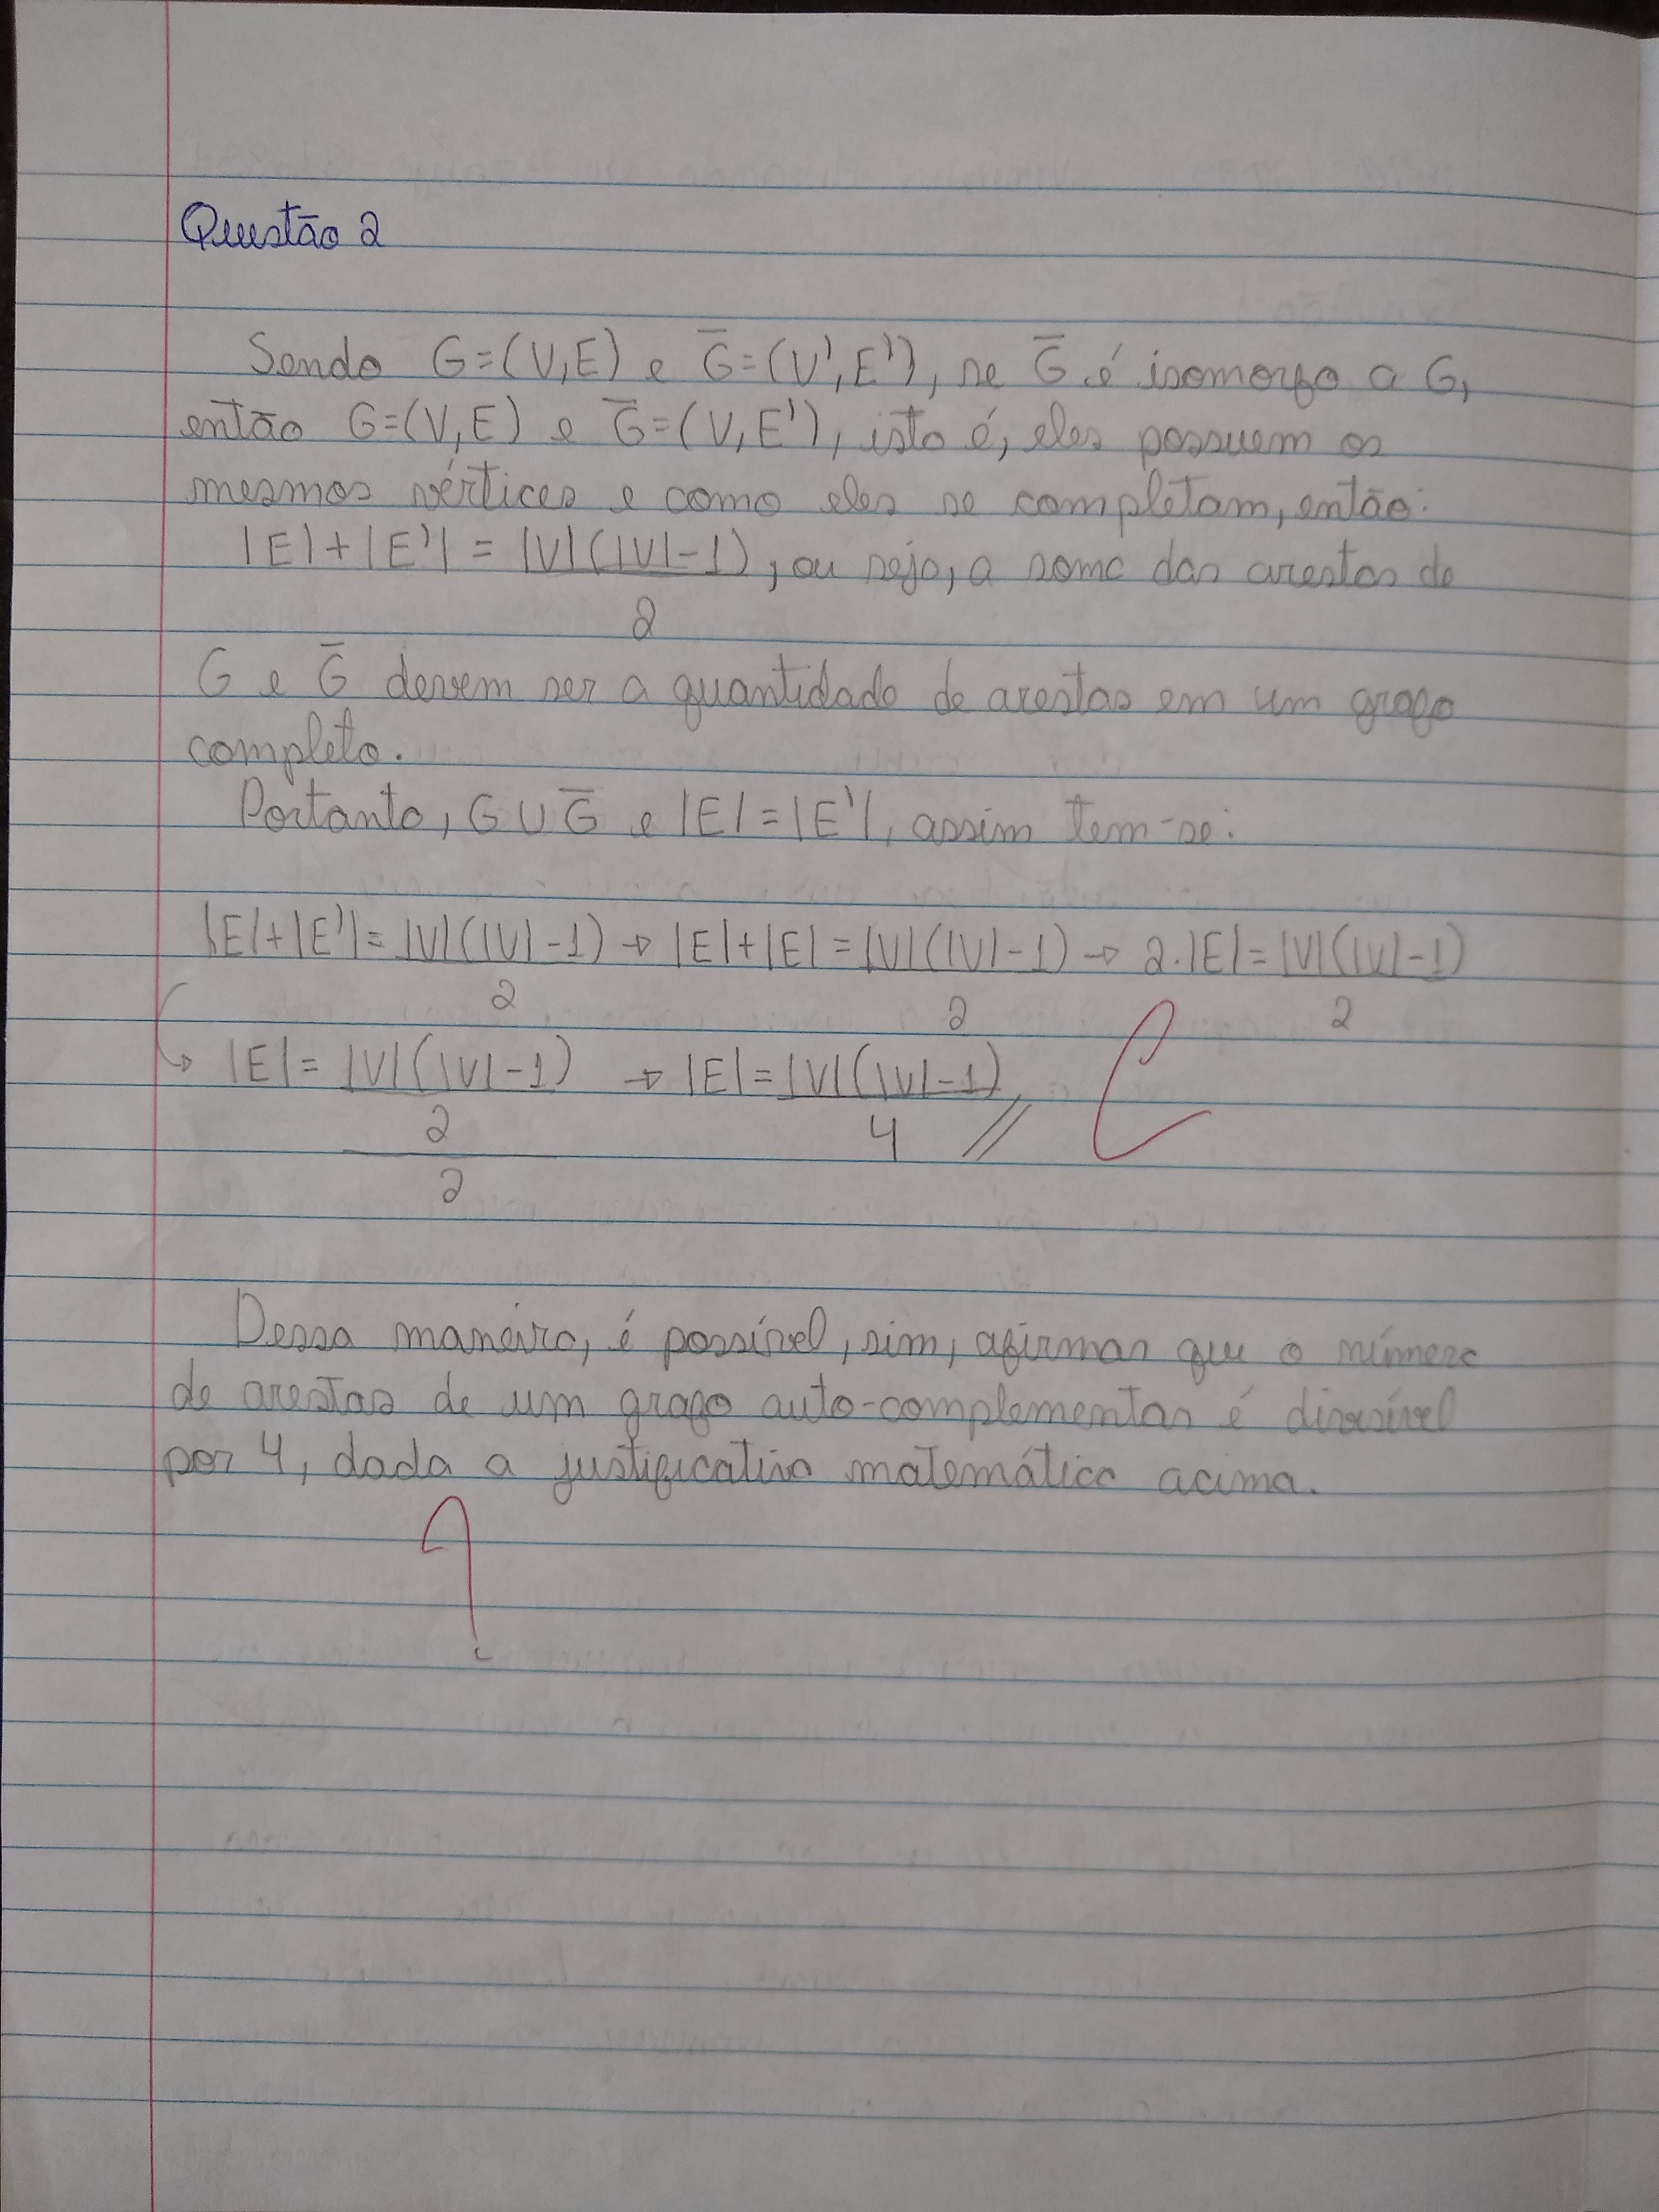 Questão 2
Sendo G=(V,E) e G̅=(V',E'), se G̅ é isomorfo a G,
então G=(V,E) e G̅=(V,E'), isto é, eles possuem os
mesmos vértices e como eles se completam, então:
|E|+|E'| = |V|(|V|-1)/2, ou seja, a soma das arestas de
G e G̅ devem ser a quantidade de arestas em um grafo
completo.
Portanto, G∪G̅ e |E|=|E'|, assim tem-se:
|E|+|E'|=|V|(|V|-1)/2 → |E|+|E|=|V|(|V|-1)/2 → 2.|E|=|V|(|V|-1)/2
↳ |E|=|V|(|V|-1)/2/2 → |E|=|V|(|V|-1)/4 // C
Dessa maneira, é possível, sim, afirmar que o número
de arestas de um grafo auto-complementar é divisível
por 4, dada a justificativa matemática acima.
?